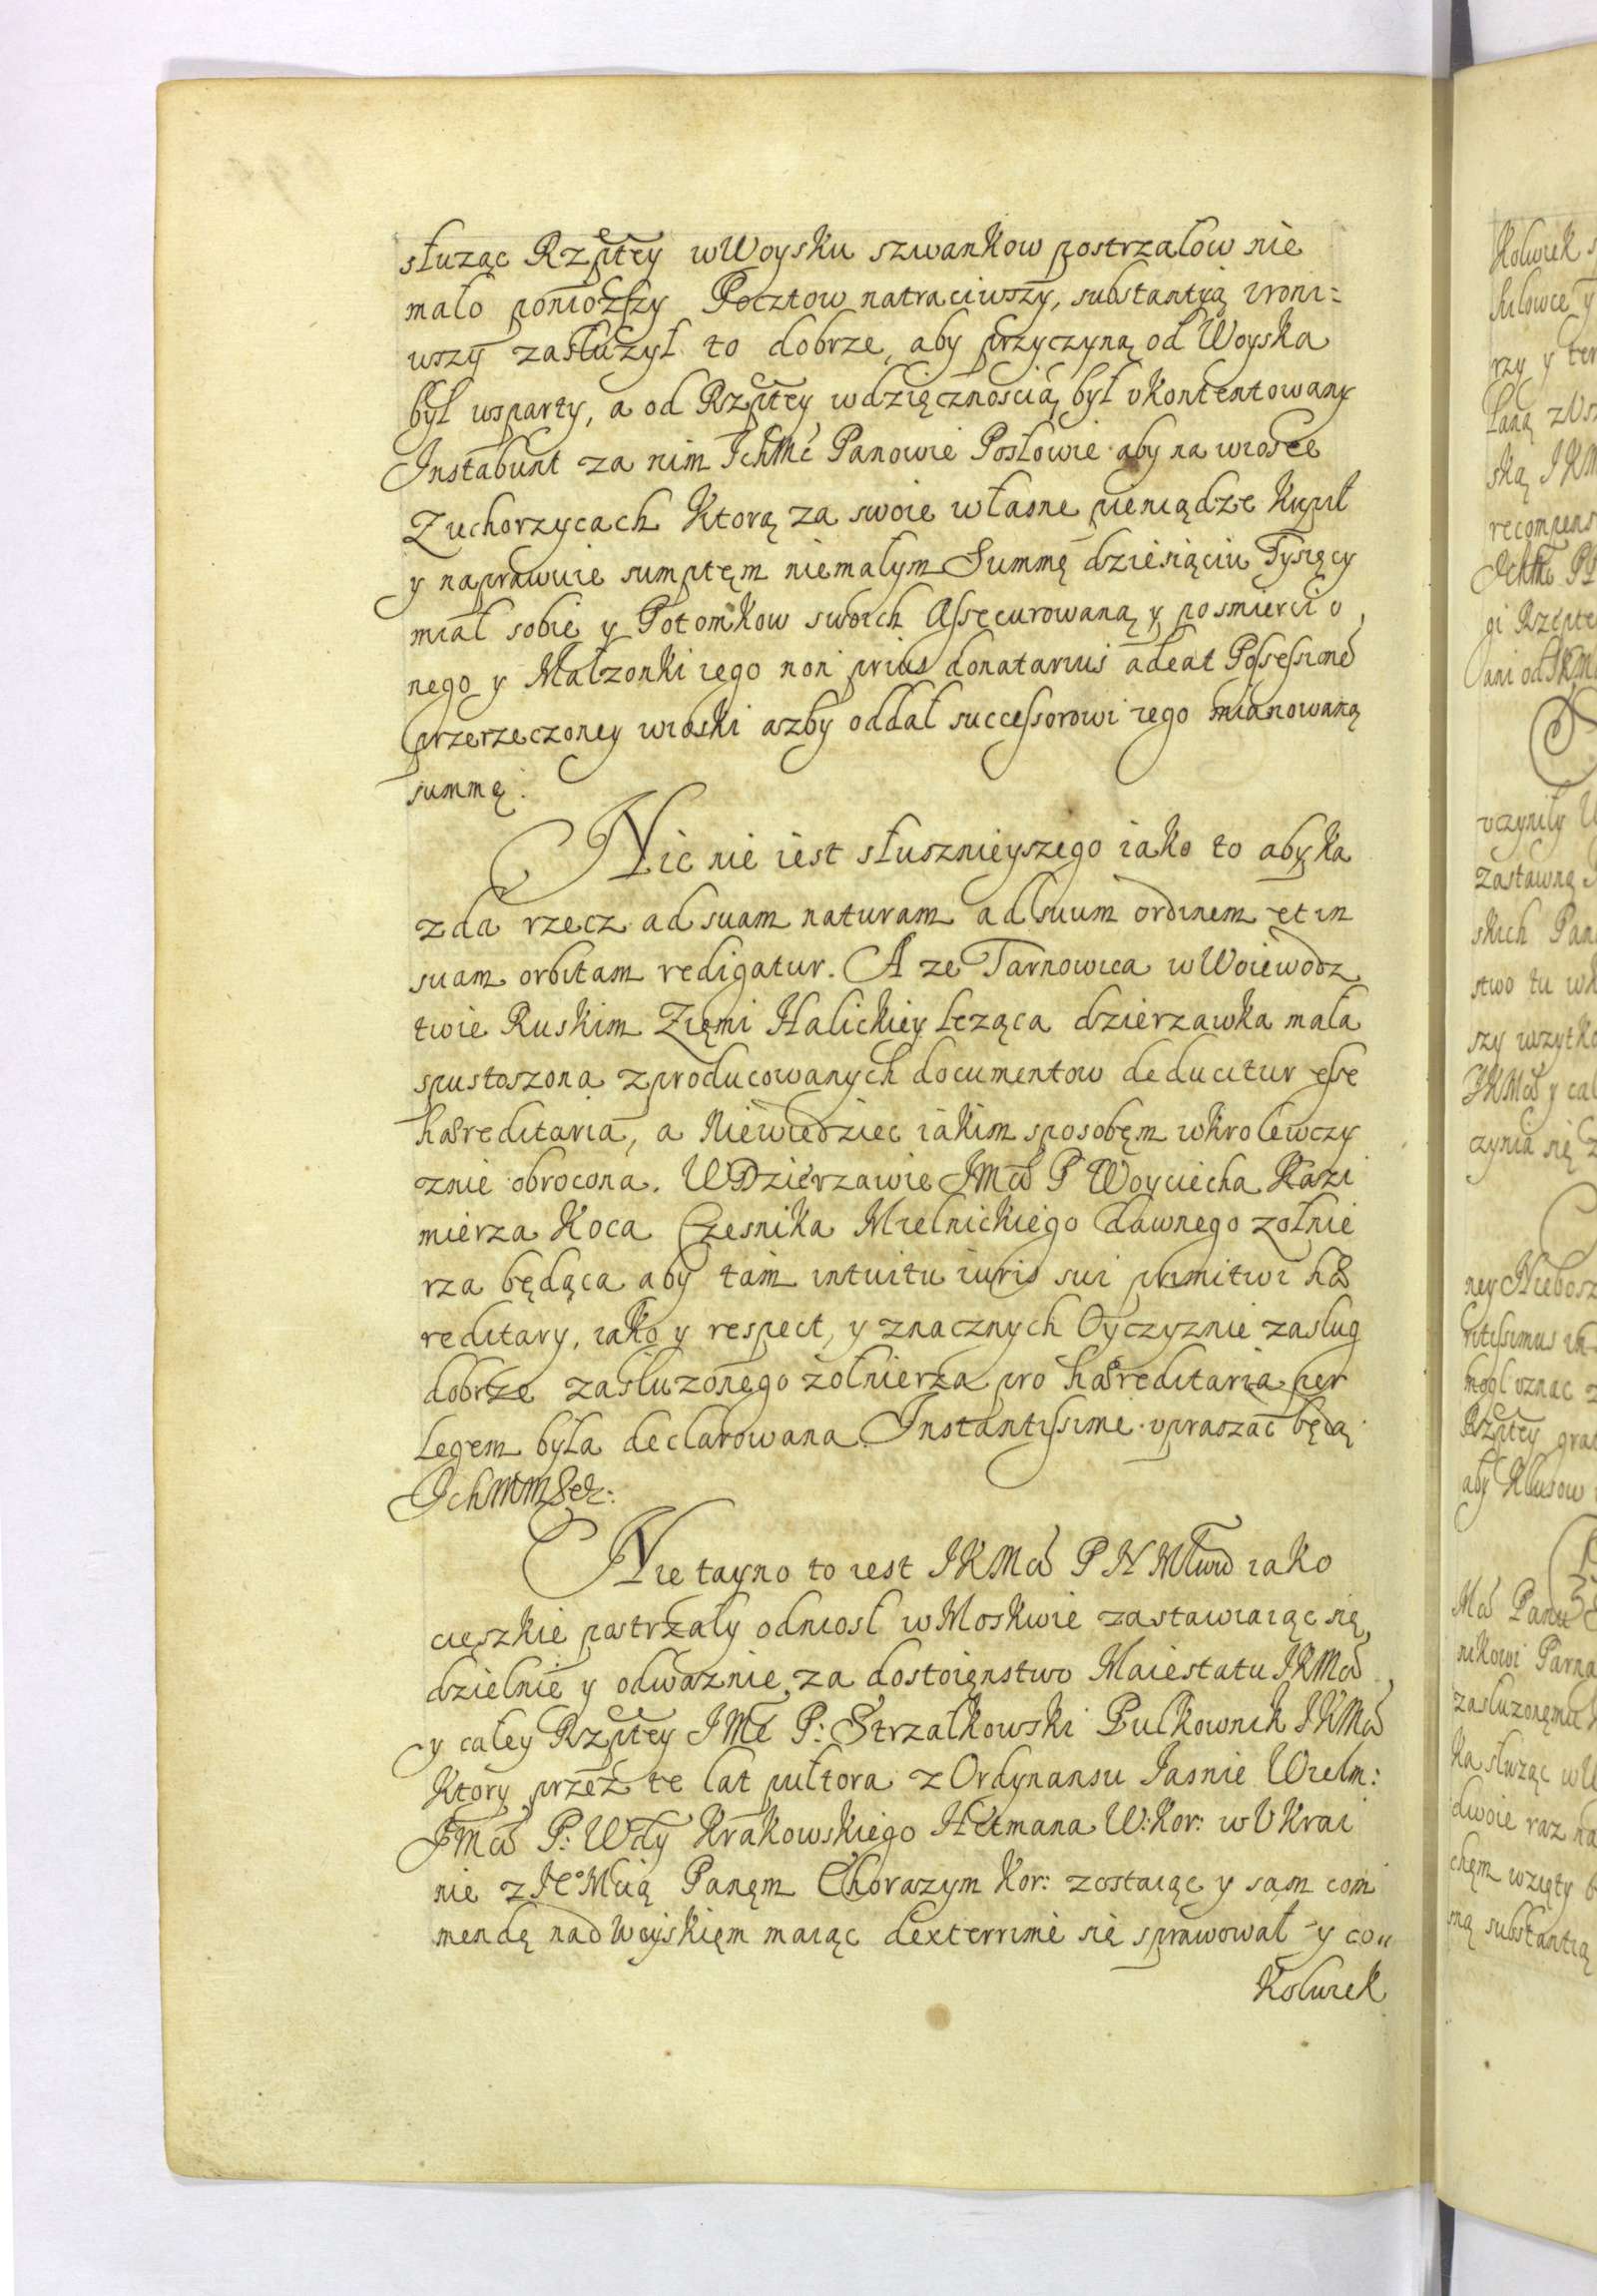 służąc Rzptey w Woysku szwankow postrzałow nie
mało poniozszy Pocztow natraciwszy, substantyą vroni=
wszy zasłuzył to dobrze, aby przyczyną od Woyska
był wsparty, a od Rzptey wdzięcznoscią był vkontentowany
Instabunt za nim IchMć Panowie Posłowie aby na wiosce
Zuchorzycach Ktorą za swoie własne pieniądze Kupił
y naprawuie sumptęm niemałym Summę dziesiąciu Tysięcy
miał sobie y Potomkow swoich Assecurowaną y po smierci o
nego y Małzonki iego non prius donatarius adeat Possessionē
przerzeczoney wioski azby oddał successorowi iego mianowaną
summę.
Nic nie iest słusznieyszego iako to aby ka
zda rzecz ad suam naturam ad suum ordinem et in
suam orbitam redigatur. A ze Tarnowica w Woiewodz
twie Ruskim Zięmi Halickiey leząca dzierzawka mała
spustoszona z producowanych documentow deducitur esse
haereditaria, a Niewiedziec iakim sposobęm w krolewczy
znie obrocona. W Dzierzawie JMci P Woyciecha Kazi
mierza Koca Czesnika Mielnickiego dawnego zołnie
rza będąca aby tam intuitu iuris sui primitivi hae
reditary, iako y respect, y znacznych Oyczyznie zasług
dobrze zasłuzonego zołnierza pro haereditaria per
Legem była declarowana Instantissime vpraszać będą
IchMM &c:
Nie tayno to iest JKMci P N Młwo iako
cięszkie postrzały odniosł w Moskwie zastawiaiąc się
dzielnie y odwaznie za dostoięnstwo Maiestatu JKMci,
y całey Rzptey JMć P: Strzałkowski Pułkownik JKMci
Ktory przez te lat pułtora z Ordynansu Jasnie Wielm:
JMci P: Wdy Krakowskiego Hetmana W: Kor: w Vkrai
nie z JeoMcią Panęm Chorązym Kor: zostaiąc y sam com
mendę nad Woyskięm maiąc dexterrime się sprawował y co„
Kolwiek